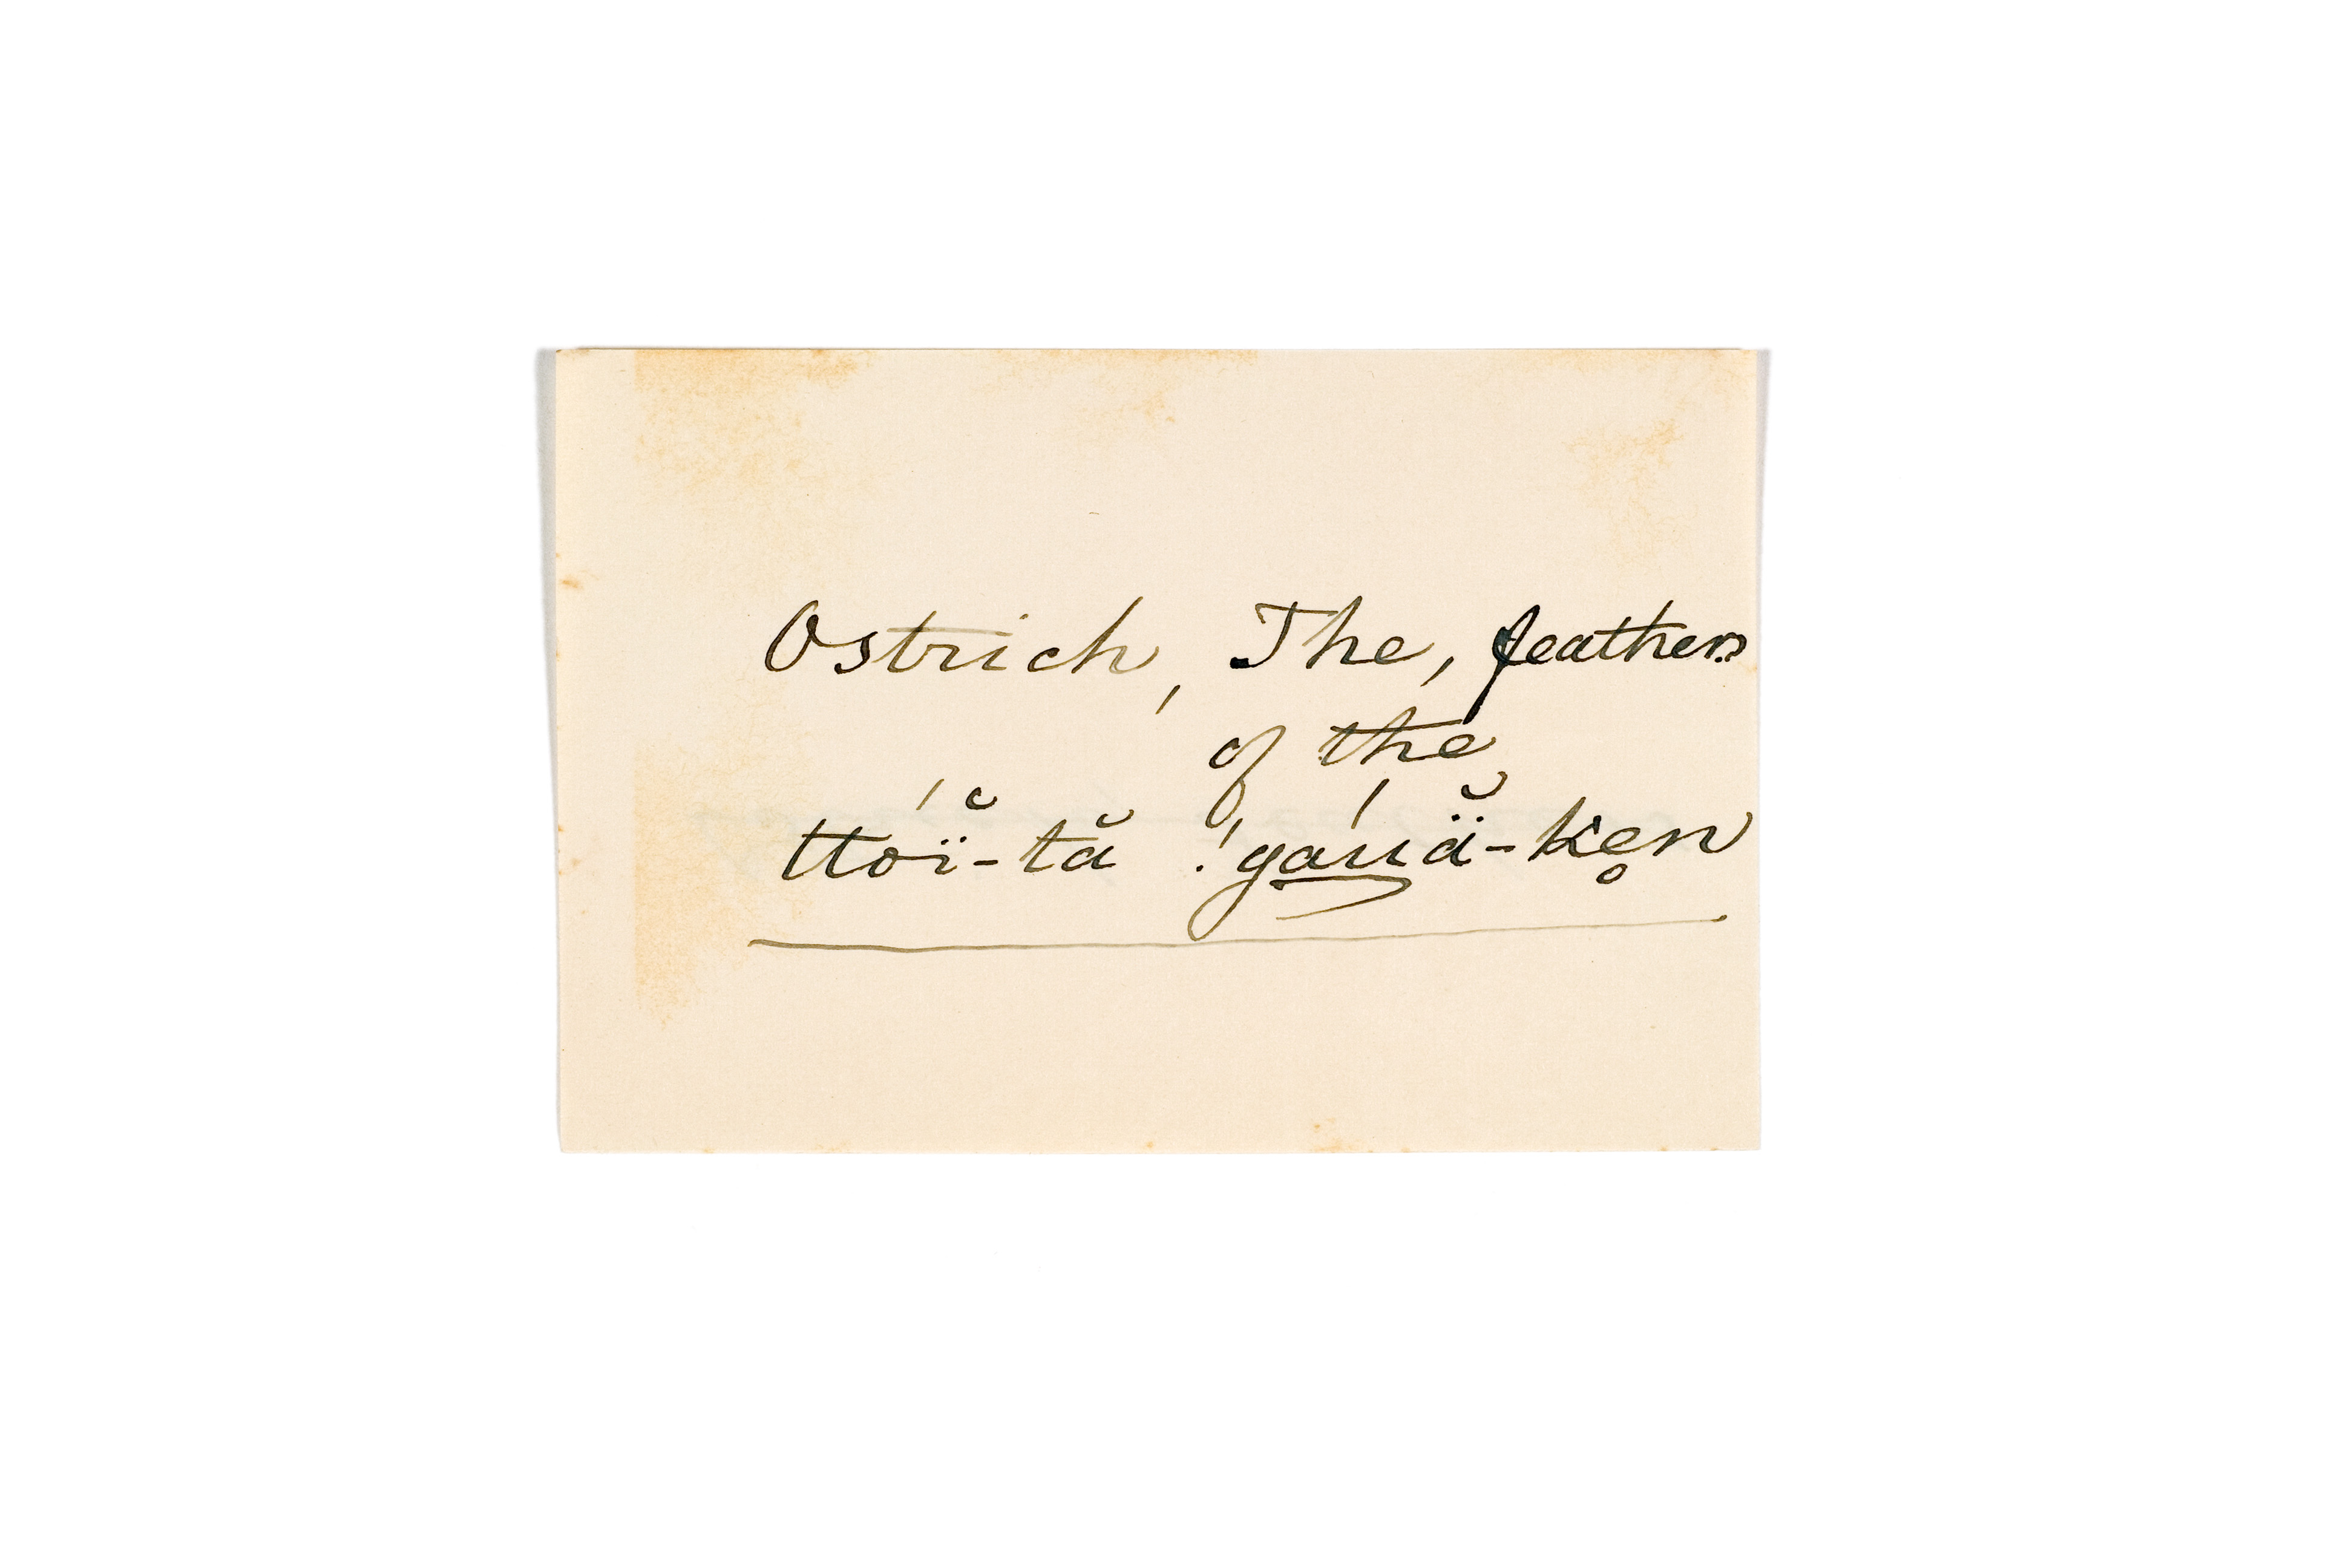 Ostrich, The, feathers
of the
ttó̆ï-tă !gáu̲ä̆-ken̥